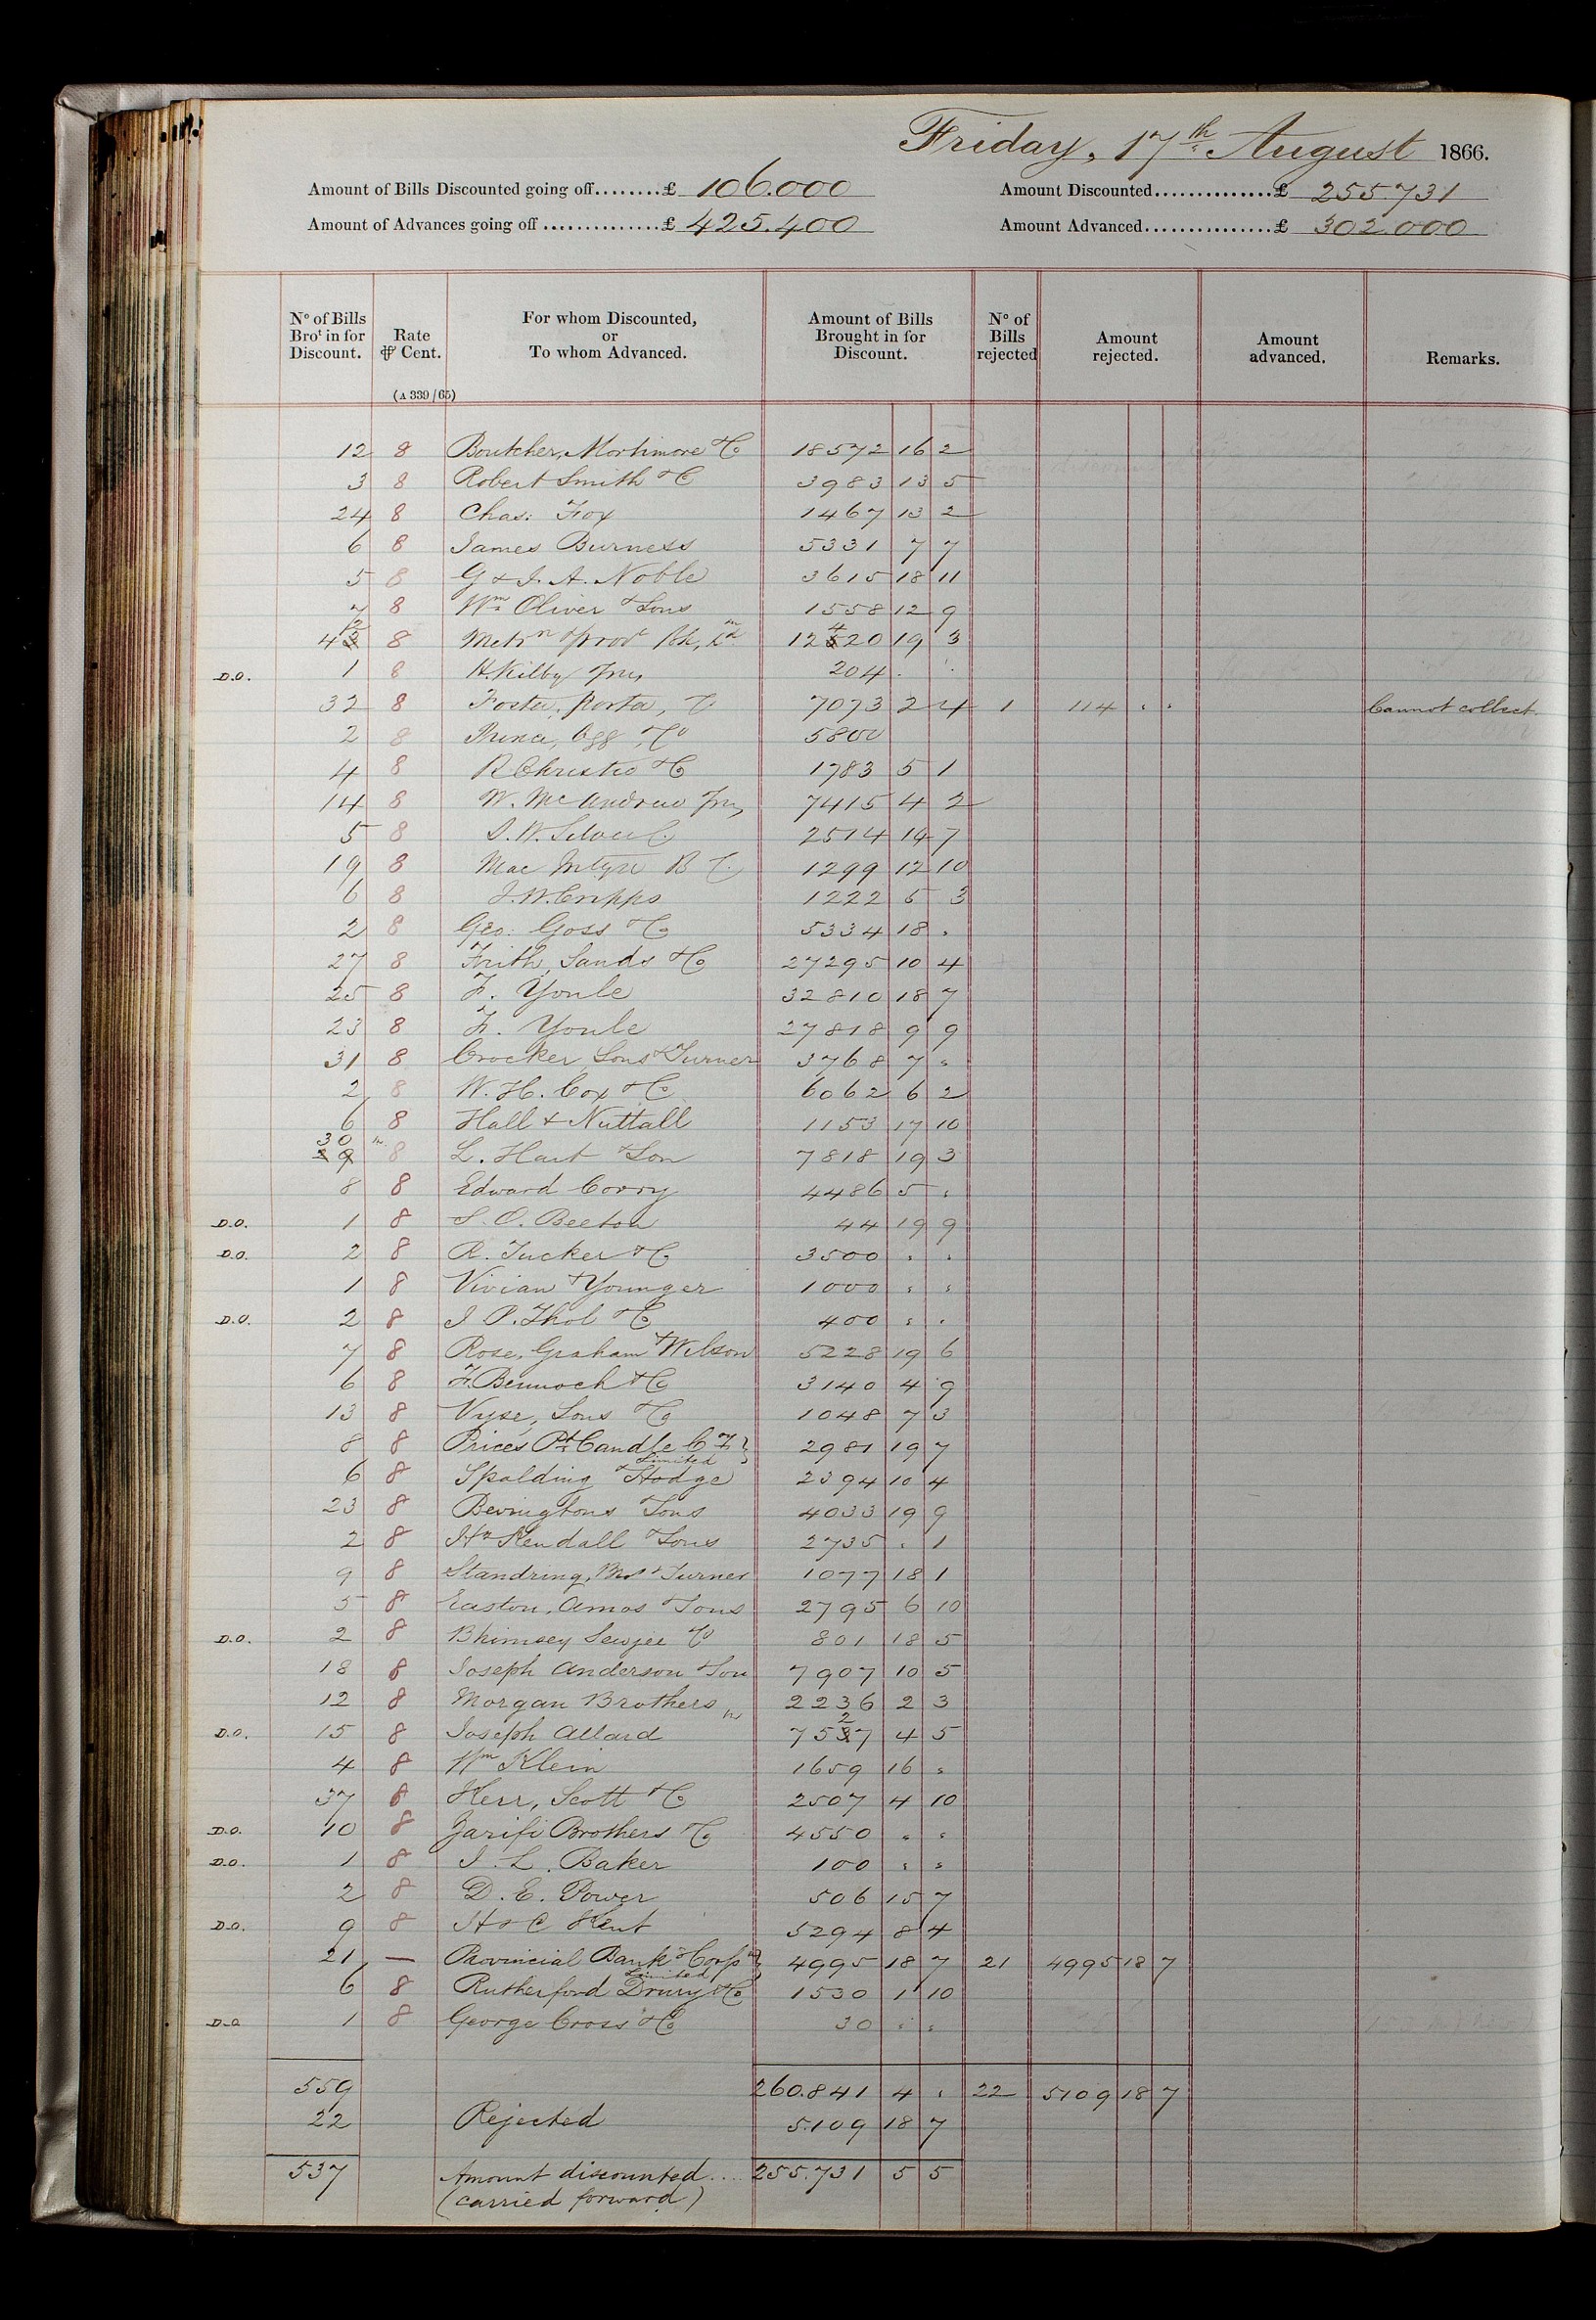 Friday, 17th August 1866.
Amount of Bills Discounted going off........£ 106.000 Amount Discounted...............£ 255.731
Amount of Advances going off ...............£ 425.400 Amount Advanced................£ 302.000
No of Bills Brot in for Discount. Rate ⅌ Cent. (A 339/65) For whom Discounted, or To whom Advanced. Amount of Bills Brought in for Discount. No of Bills rejected Amount rejected. Amount advanced. Remarks.
12 8 Boutcher, Mortimore & Co 18572 16 2
3 8 Robert Smith & Co 3983 13 5
24 8 Chas: Fox 1467 13 2
6 8 James Burness 5331 7 7
5 8 G & J. A. Noble 3615 18 11
7 8 Wm Oliver & Sons 1558 12 9
42 8 Metn & Provl Bk, Ld 12420 19 3
D.O. 1 8 H. Kilby Jnr 204 . .
32 8 Foster, Porter, & Co 7073 2 4 1 114 . . Cannot collect.
2 8 Prince, Ogg & Co 5800
4 8 R Christie & Co 1783 5 1
14 8 W. McAndrew Jnr 7415 4 2
5 8 S. W. Silver & Co 2514 14 7
19 8 Mac Intyre B & Co 1299 12 10
6 8 J. W. Cripps 1222 5 3
2 8 Geo: Goss & Co 5334 18 .
27 8 Frith, Sands & Co 27295 10 4
25 8 F. Youle 32810 18 7
23 8 F. Youle 27818 9 9
31 8 Crocker, Sons & Turner 3768 7 .
2 8 W. H. Cox & Co 6062 6 2
6 8 Hall & Nuttall 1153 17 10
30 8 L. Hart & Son 7818 19 3
8 8 Edward Corry 4486 5 .
D.O. 1 8 S. O. Beeton 44 19 9
D.O. 2 8 R. Tucker & Co 3500 . .
1 8 Vivian & Younger 1000 . .
D.O. 2 8 J P. Thol & Co 400 . .
7 8 Rose, Graham & Wilson 5228 19 6
6 8 F. Bennoch & Co 3140 4 9
13 8 Vyse, Sons & Co 1048 7 3
8 8 Prices Pt Candle Co Limited 2981 19 7
6 8 Spalding & Hodge 2394 10 4
23 8 Bevingtons & Sons 4033 19 9
2 8 Hy Kendall & Sons 2735 . 1
9 8 Standring, & Turner 1077 18 1
5 8 Easton, Amos & Sons 2795 6 10
D.O. 2 8 Bhimsey Sewjee & Co 801 18 5
18 8 Joseph Anderson & Son 7907 10 5
12 8 Morgan Brothers 2236 2 3
D.O. 15 8 Joseph Allard 7527 4 5
4 8 Wm Klein 1659 16 .
37 8 Kerr, Scott & Co 2507 4 10
D.O. 10 8 Zarifi Brothers & Co 4550 . .
D.O. 1 8 J. L. Baker 100 . .
2 8 D. E. Power 506 15 7
D.O. 9 8 H & C Kent 5294 8 4
21 — Provincial Bank Corpn Limited 4995 18 7 21 4995 18 7
6 8 Rutherford Drury & Co 1530 1 10
D.O 1 8 George Cross & Co 30 . .
559 260.841 4 . 22 5109 18 7
22 Rejected 5.109 18 7
537 Amount discounted.... 255.731 5 5
(carried forward)